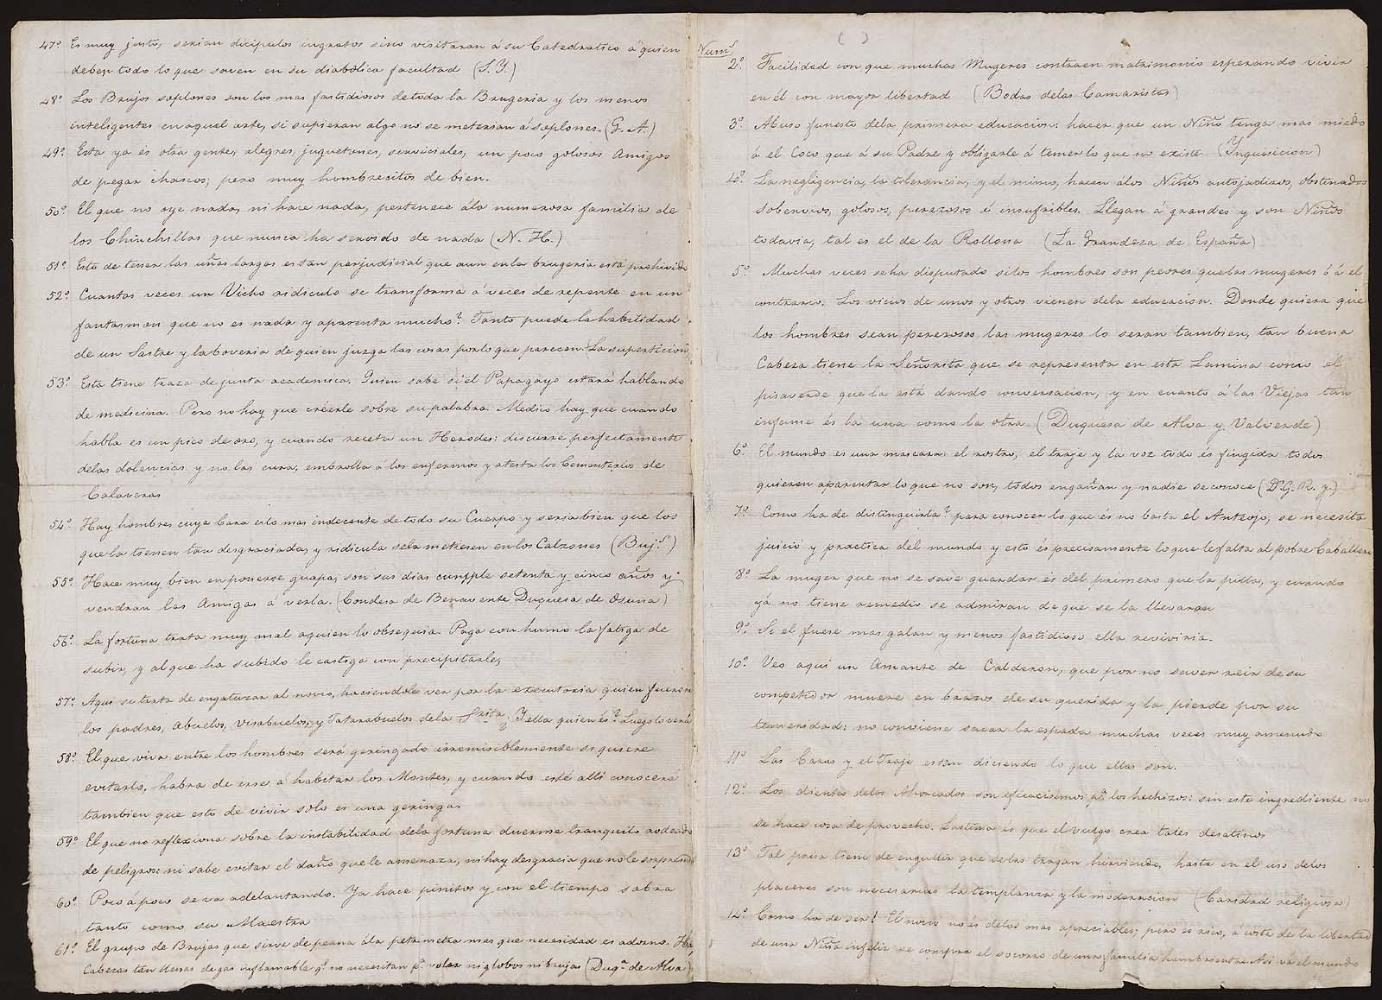 47ª Es muy justo, serian dicipulos ingratos sino visitaran á su Catedratico á quien
deben todo lo que saven en su diabólica facultad (S. Y.)
48ª Los Brujos soplones son los mas fastidiosos de toda la Brugeria y los menos
inteligentes en aquel arte, si supieran algo no se meterian á soplones. (G. A.)
49ª Esta ya és otra gente, alegres, juguetones, serviciales, un poco golosos Amigos
de pegar chascos; pero muy hombrecitos de bien.
50ª El que no oye nada, ni hace nada, pertenece ála numerosa familia de
los Chinchillas que nunca ha servido de nada (N. H.)
51ª Esto de tener las uñas largas es tan perjudicial que aun en la brugeria está prohivido
52ª Cuantas veces un Vicho ridiculo se transforma á veces de repente en un
fantasmon que no es nada y aparenta mucho? Tanto puede la habilidad
de un Sastre y la boveria de quien juzga las cosas por lo que parecen. La supersticion
53ª Esta tiene traza de junta academica. Quien sabe si el Papagayo estará hablando
de medicina. Pero no hay que creerle sobre su palabra. Medico hay que cuando
habla es un pico de oro, y cuando receta un Herodes: discurre perfectamente
delas dolencias y no las cura, emboba á los enfermos y atesta los Cementerios de
Calaveras
54ª Hay hombres cuya Cara es lo mas indecente de todo su Cuerpo y seria bien que los
que la tienen tan desgraciada, y ridicula se la metiesen en los Calzones (Buj.ˢ)
55ª Hace muy bien en ponerse guapa, son sus dias cumple setenta y cinco años y
vendran las Amigas á verla. (Condesa de Benavente Duquesa de Osuna)
56ª La fortuna trata muy mal a quien lo obsequia. Paga con humo la fatiga de
subir, y al que ha subido le castiga con precipitarle,
57ª Aqui se trata de engatuzar al novio, haciendole ver por la executoria quien fueron
los padres, abuelos, visabuelos, y Tatarabuelos de la Srita. Y ella quien és? Luego lo verá
58ª El que viva entre los hombres será geringado irremisiblemente si quiere
evitarlo, habra de irse á habitar los Montes, y cuando esté alli conocerá
tambien que esto de vivir solo es una geringa.
59ª El que no reflexiona sobre la instabilidad dela fortuna duerme tranquilo rodeado
de peligros: ni sabe evitar el daño que le amenaza, ni hay desgracia que no le sorprenda
60ª Poco á poco se va adelantando. Ya hace pinitos y con el tiempo sabra
tanto como su Maestra
61ª El grupo de Brujas que sirve de peana ála petimetra mas que necesidad es adorno. Hay
Cabezas tan llenas de gas inflamable q.ᵉ no necesitan p.ª volar ni globos ni brujas (Duq.ª de Alva)
( )
Numˢ
2ª. Facilidad con que muchas Mugeres contraen matrimonio esperando vivir
en él con mayor libertad (Bodas delas Camaristas)
3ª. Abuso funesto dela primera educacion. hacer que un Niño tenga mas miedo
á el Coco que á su Padre y obligarle á temer lo que no existe (Inquisicion)
4ª. La negligencia, la tolerancia, y el mimo, hacen álos Niños antojadizos, obstinados
sobervios, golosos, perezosos é insufribles. Llegan á grandes y son Niños
todavia, tal es el de la Rollona (La Grandeza de España)
5ª Muchas veces se ha disputado si los hombres son peores que las mugeres ó á el
contrario. Los vicios de unos y otros vienen dela educacion. Donde quiera que
los hombres sean perezosos las mugeres lo seran tambien, tan buena
Cabeza tiene la Señorita que se representa en esta Lamina como el
pisaverde que la está dando conversacion, y en cuanto á las Viejas tan
infame és la una como la otra. (Duquesa de Alva y Valverde)
6ª. El mundo es una mascara: el rostro, el traje y la voz todo és fingido todos
quieren aparentar lo que no son, todos engañan y nadie se conoce
7ª. Como ha de distinguirla? para conocer lo que és no basta el Anteojo, se necesita
juicio y practica del mundo y esto és precisamente lo que le falta al pobre Caballero
8ª La muger que no se save guardar és del primero que la pilla, y cuando
yá no tiene remedio se admiran de que se la llevaron
9ª. Si el fuese mas galan y menos fastidioso ella reviviria.
10ª. Veo aqui un Amante de Calderon, que por no saver reir de su
competidor muere en brazos de su querida y la pierde por su
temeridad: no conviene sacar la espada muchas veces muy amenudo
11ª Las Caras y el Traje estan diciendo lo que ellos son.
12ª. Los dientes delos Ahorcados son eficacisimos p.ª los hechizos: sin este ingrediente no
se hace cosa de provecho. Lastima es que el vulgo crea tales desatinos
13ª Tal prisa tienen de engullir que selos tragan hirviendo, hasta en el uso delos
placeres son necesarias la templanza y la moderacion (Caridad religiosa)
14ª Como ha de ser! El novio no és delos mas apreciables; pero és rico, á costa de la libertad
de una Niña infeliz se compra el socorro de una familia hambrienta. Asi vá el mundo